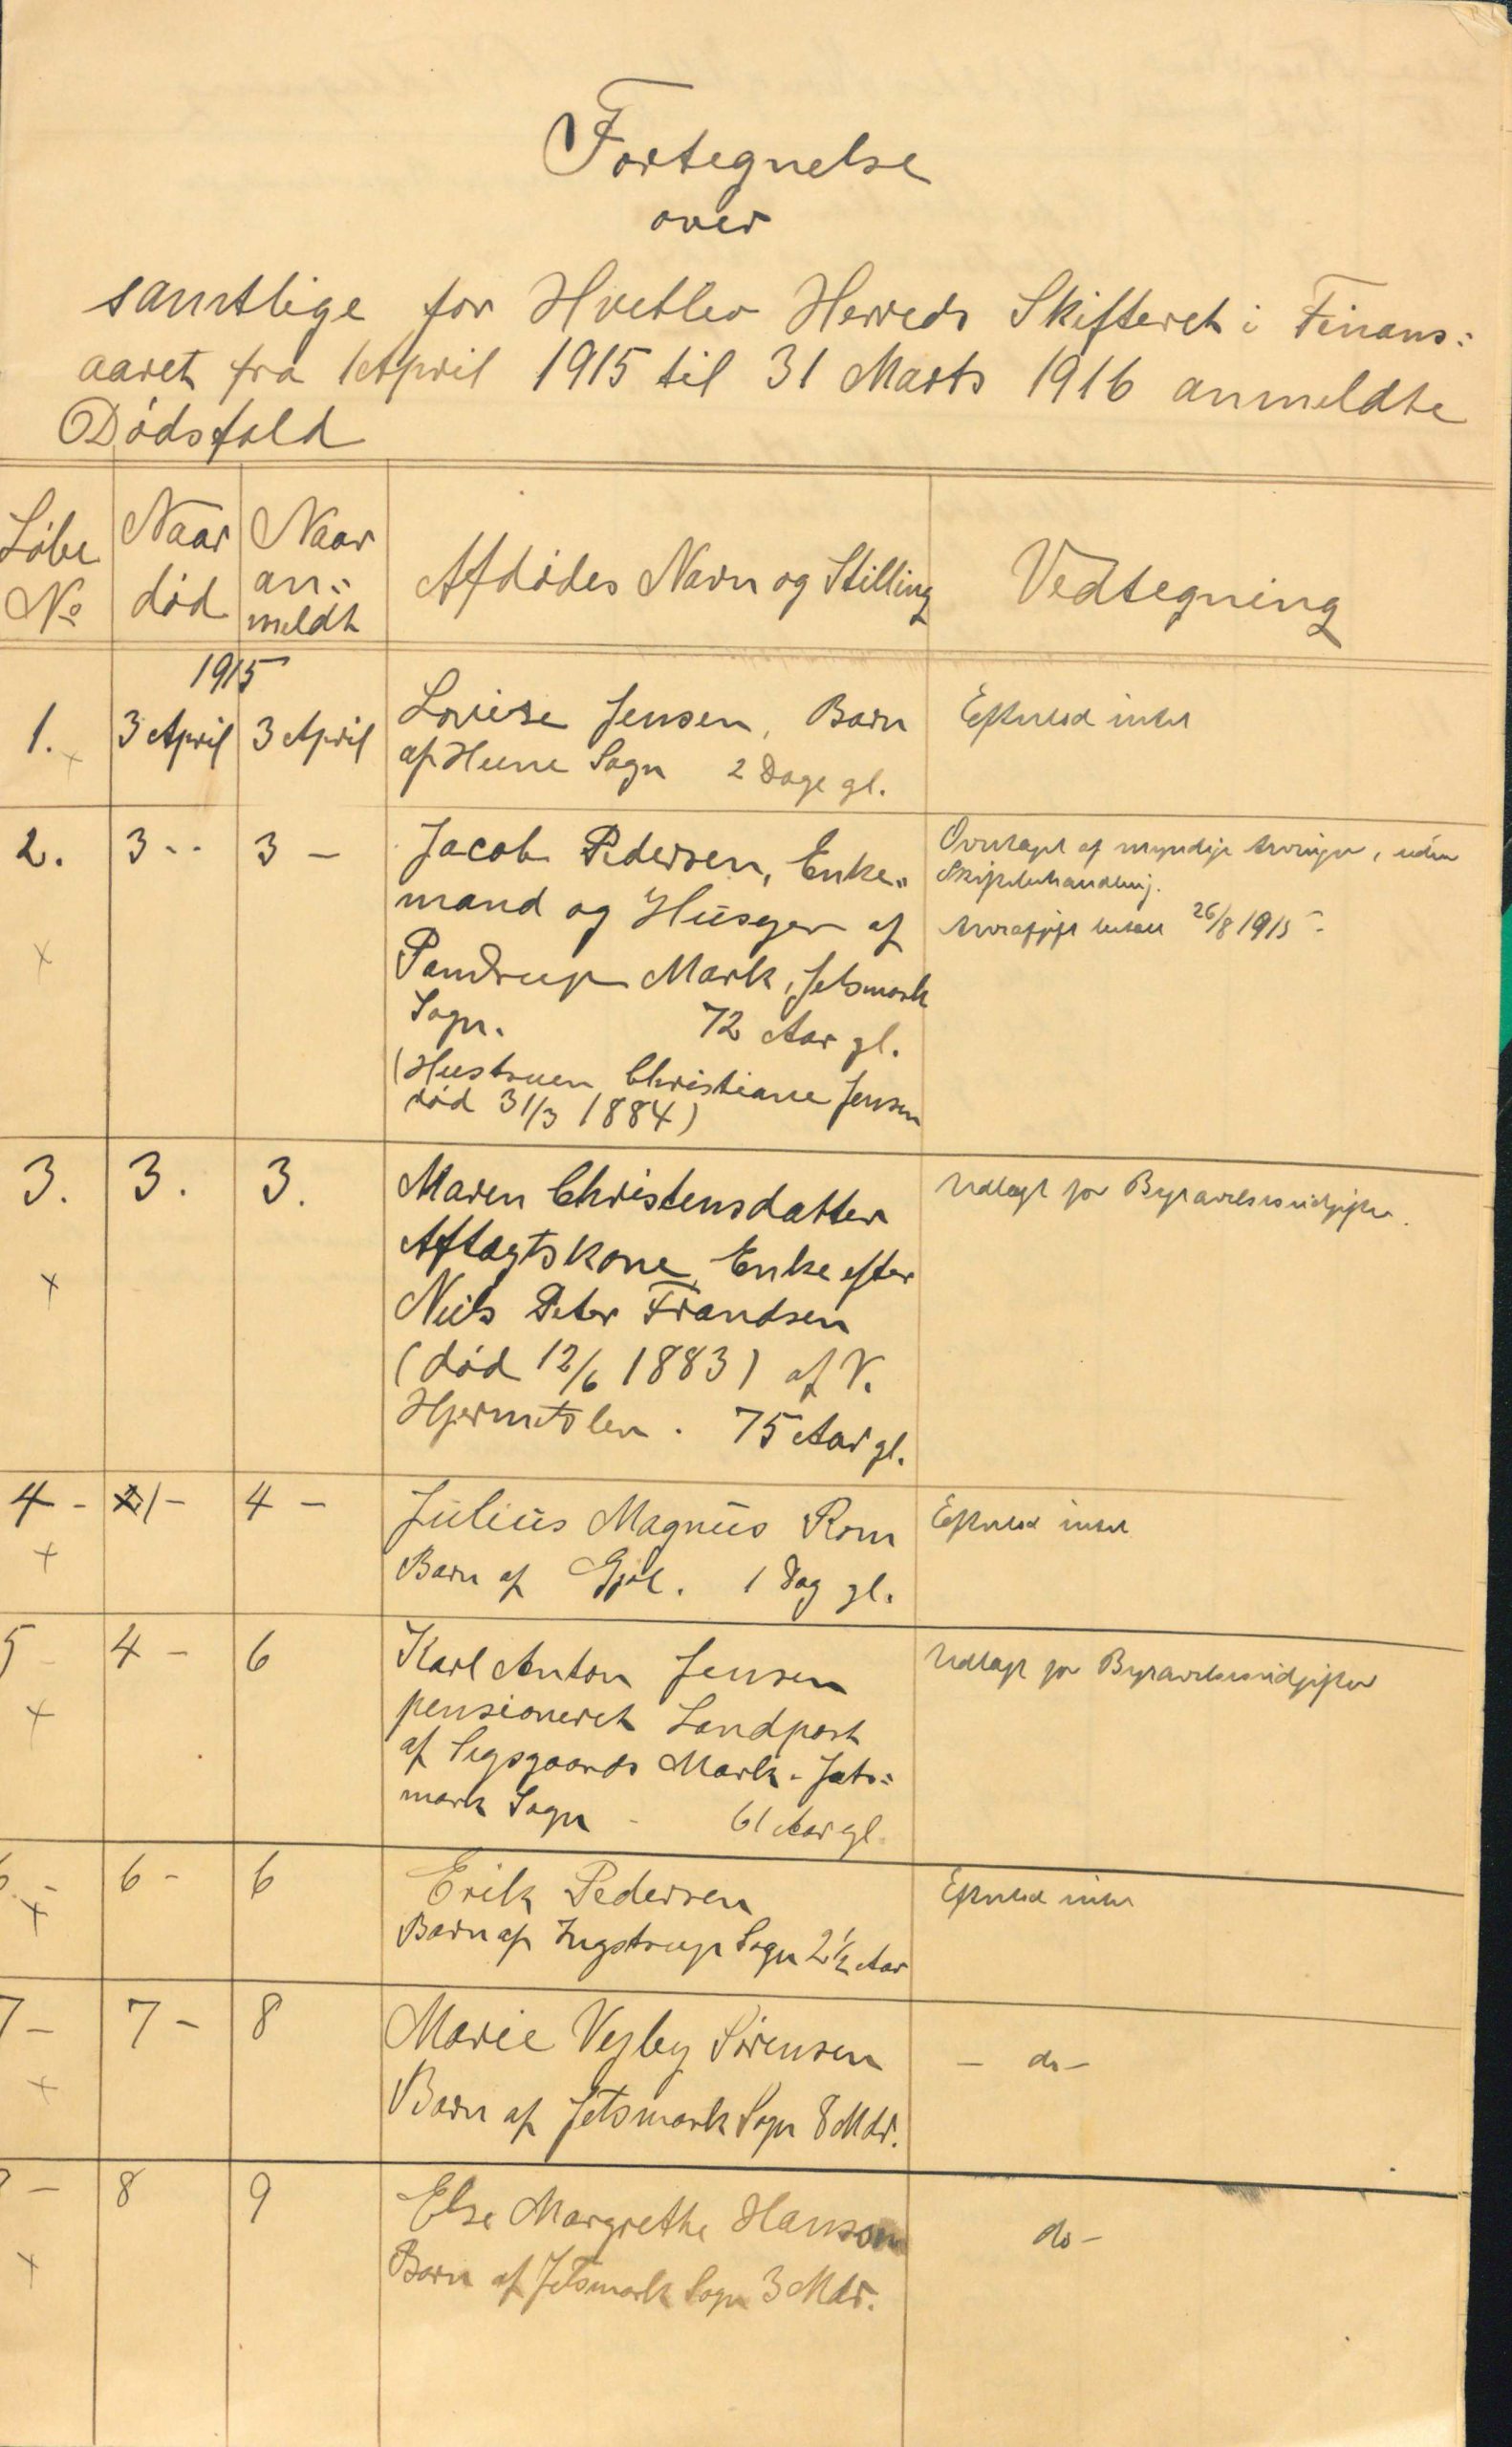 Fortegnelse
over
samtlige for Hvetbo Herreds Skifteret i Finans=
aaret fra 1 April 1915 til 31 Marts 1916 anmeldte
Dødsfald
Løbe
No
Naar
død
Naar
an=
meldt
Afdødes Navn og Stilling
Vedtegning
1915
1. 3 April 3 April
Lovise Jensen, Barn
af Hune Sogn 2 Dage gl.
Efterlod intet
2. 3 - - 3 -
Jacob Pedersen, Enke=
mand og Huseger af
Pandrup Mark, Jetsmark
Sogn. 72 Aar gl.
(Hustruen Christiane Jensen
død 31/3 1884)
Overtaget af myndige Arvinger, uden
Skiftebehandling.
Arveafgift betalt 26/8 1915 -
3. 3. 3.
Maren Christensdatter
Aftægtskone, Enke efter
Niels Peter Frandsen
(død 12/6 1883) af V.
Hjermitslev. 75 Aar gl.
Udlagt for Begravelsesudgifter.
4 - 1 - 4 -
Julius Magnus Rom
Barn af Gjøl. 1 Dag gl.
Efterlod intet
5 - 4 - 6
Karl Anton Jensen
pensioneret Landpost
af Sigsgaards Mark - Jets=
mark Sogn - 61 Aar gl.
Udlagt for Begravelsesudgifter
6 - 6 - 6
Erik Pedersen
Barn af Ingstrup Sogn 2½ Aar
Efterlod intet
7 - 7 - 8
Marie Vejby Sørensen
Barn af Jetsmark Sogn 8 Mdr.
- do -
- 8 9
Else Margrethe Hanson
Barn af Jetsmark Sogn 3 Mdr.
do -